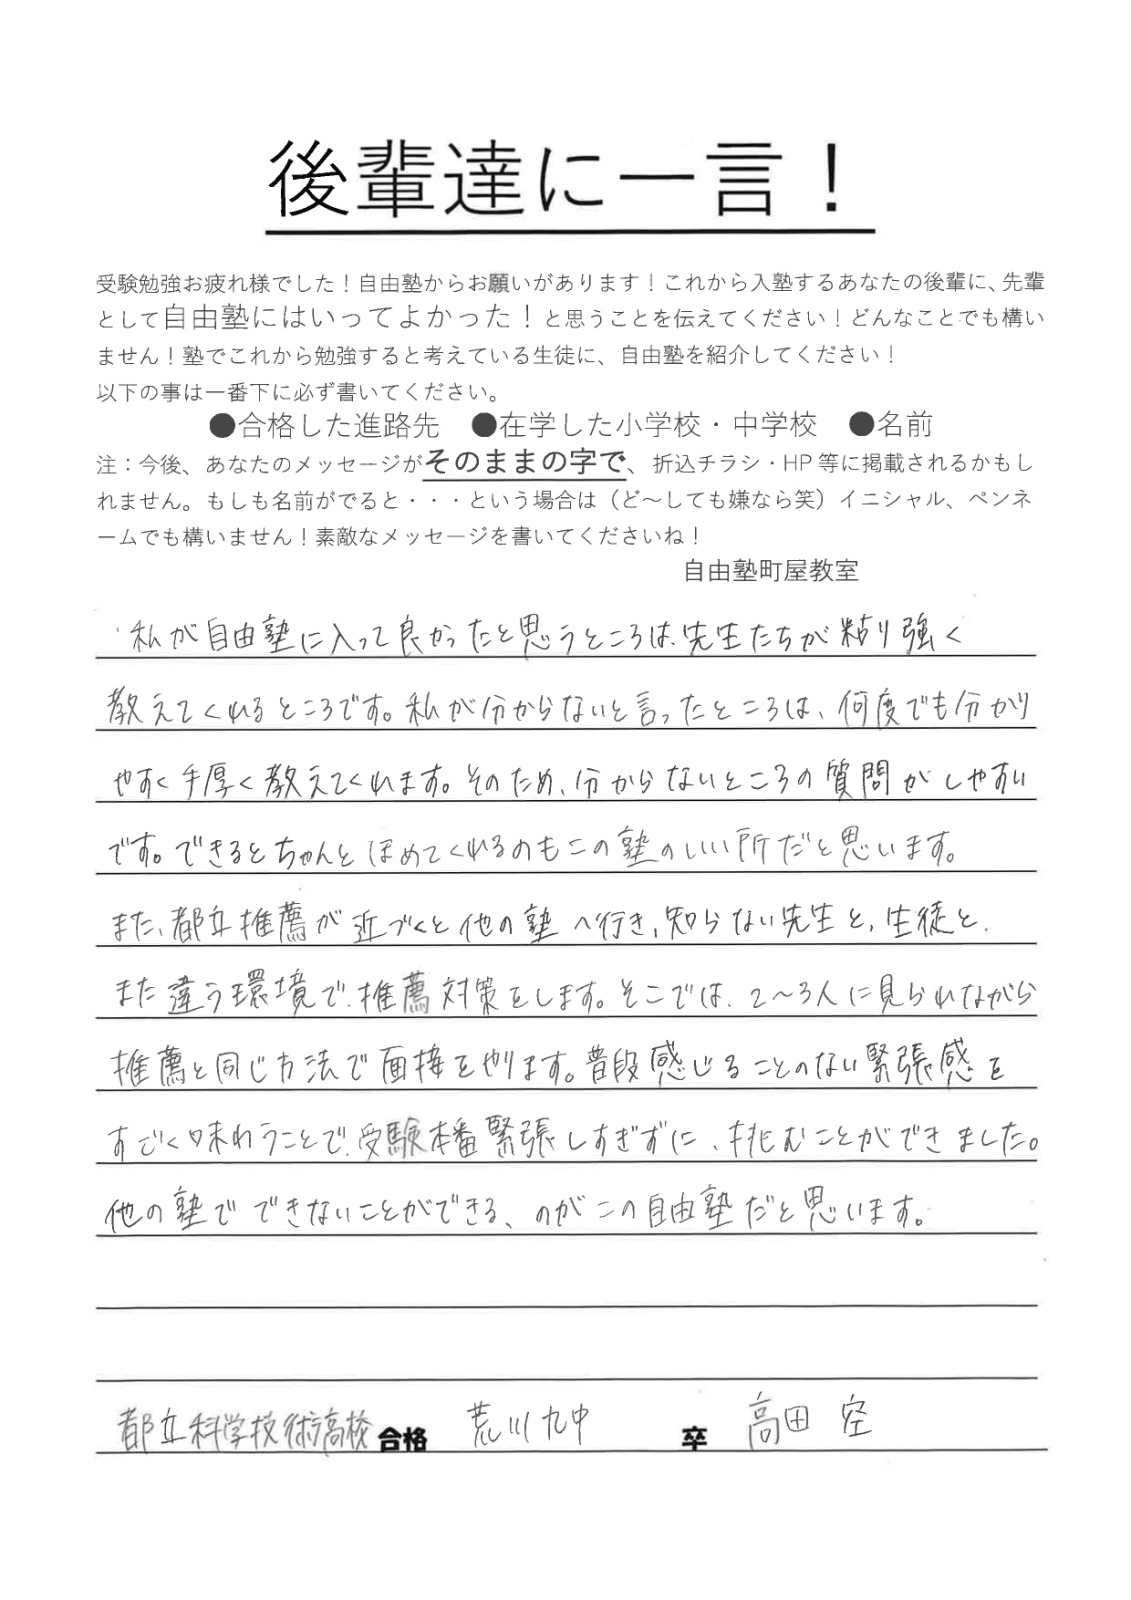 後輩達に一言！
受験勉強お疲れ様でした！自由塾からお願いがあります！これから入塾するあなたの後輩に、先輩
として自由塾にはいってよかった！と思うことを伝えてください！どんなことでも構い
ません！塾でこれから勉強すると考えている生徒に、自由塾を紹介してください！
以下の事は一番下に必ず書いてください。
●合格した進路先　●在学した小学校・中学校　●名前
注：今後、あなたのメッセージがそのままの字で、折込チラシ・HP 等に掲載されるかもし
れません。もしも名前がでると・・・という場合は（ど～しても嫌なら笑）イニシャル、ペンネ
ームでも構いません！素敵なメッセージを書いてくださいね！
自由塾町屋教室
私が自由塾に入って良かったと思うところは、先生たちが粘り強く
教えてくれるところです。私が分からないと言ったところは、何度でも分かり
やすく手厚く教えてくれます。そのため、分からないところの質問がしやすい
です。できるとちゃんとほめてくれるのもこの塾のいい所だと思います。
また、都立推薦が近づくと他の塾へ行き、知らない先生と、生徒と、
また違う環境で、推薦対策をします。そこでは、2～3人に見られながら
推薦と同じ方法で面接をやります。普段感じることのない緊張感を
すごく味わうことで、受験本番緊張しすぎずに、挑むことができました。
他の塾でできないことができる、のがこの自由塾だと思います。
都立科学技術高校 合格　荒川九中　卒　高田 空